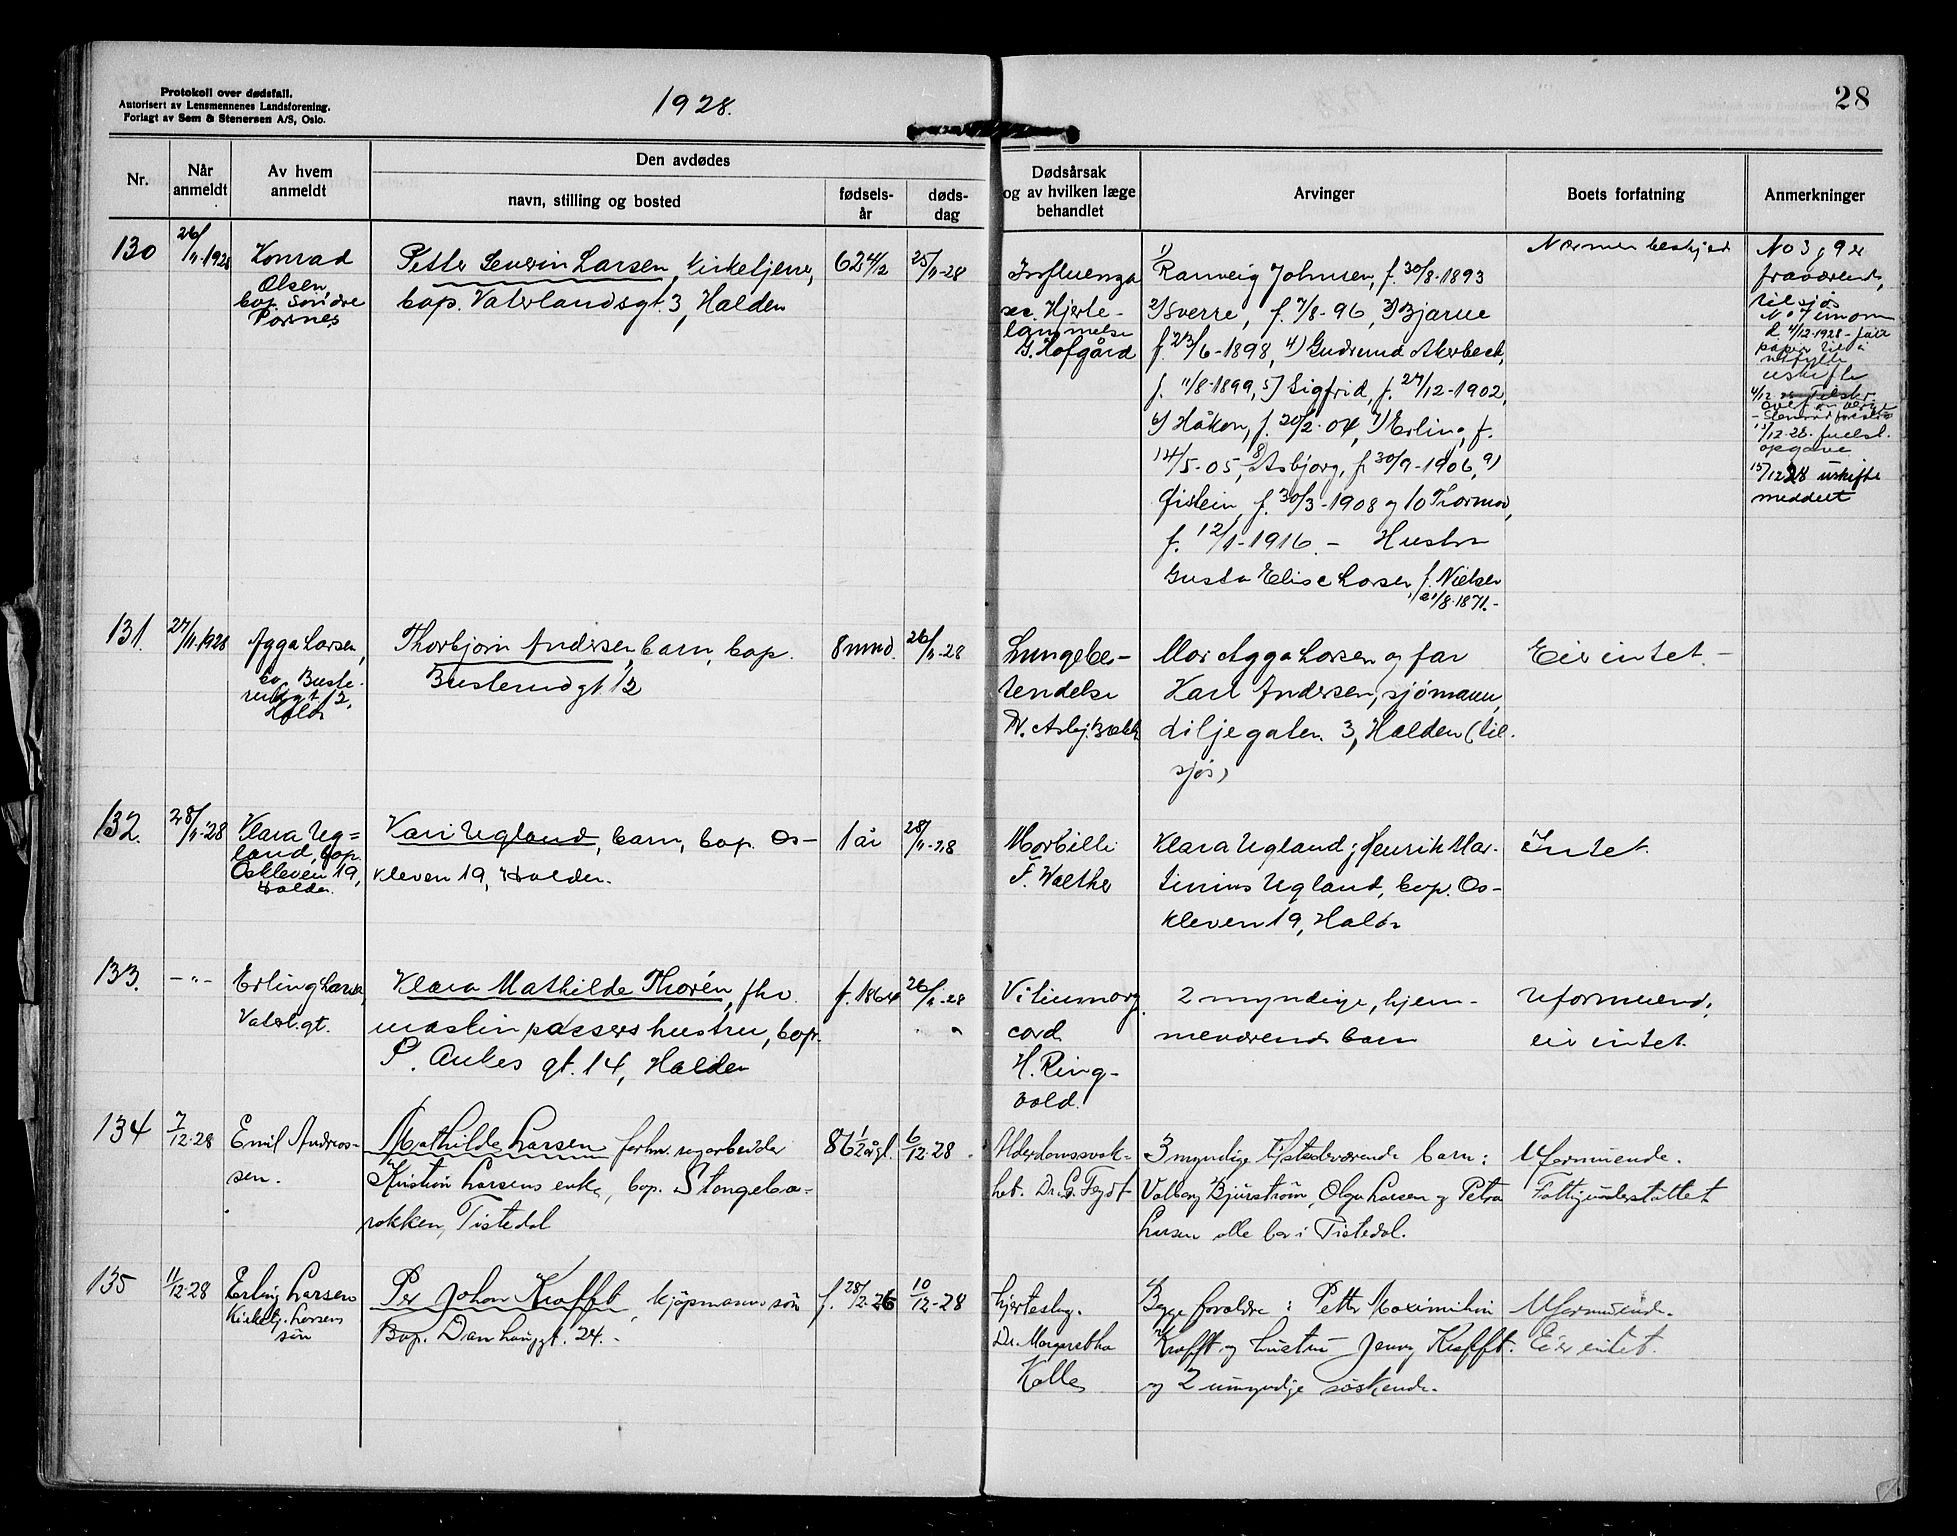 Protokoll over dødsfall.
Autorisert av Lensmennenes Landsforening.
Forlagt av Sem & Stenersen A/S, Oslo.
1928.
28
Nr.
Når anmeldt
Av hvem anmeldt
Den avdødes
navn, stilling og bosted
fødsels-år
døds-dag
Dødsårsak
og av hvilken læge
behandlet
Arvinger
Boets forfatning
Anmerkninger
130
26/11-1928
Konrad
Olsen,
bop. Søndre
Petter Severin Larsen, kirketjener,
bop. Vaterlandsgt. 3, Halden
25/11-28
Influenza
sec. Hjerte-
lammelse
G. Hofgård
1)
Ranveig Johnsen, f. 30/8-1893
2) Sverre, f. 7/8-96, 3) Bjarne
f. 23/6-1898, 4) Gudrund Akerbeck,
f. 11/8-1899, 5) Sigfrid, f. 27/12-1902,
6) Håkon, f. 20/2-04, 7) Erling, f.
14/5-05, 8) Asbjørg, f. 30/9-1906, 9)
Øistein, f. 30/3-1908 og 10 Thormod,
f. 12/11-1916. - Hustru
Gusta Elise Larsen f. Nielsen
21/8-1871.-
Nærmer beskjed
No 3 og 9 er
fraværende,
til sjøs
4/12-1928 - får
papir til å
utfylde
uskifte
4/12
opgave
15/12 28 uskifte
meddelt
131.
27/11-1928
Agga Larsen,
bop. Buste-
rudgt 12,
Halden
Thorbjørn Andersen, barn, bop.
Busterudgt 12
8 mnd.
26/11-28
Lungebe-
tendelse
Mor Agga Larsen og far
Karl Andersen, sjømann,
Liljegaten 3, Halden (til
sjøs)
Eier intet. -
132.
28/11-28
Klara Ug=
land, bop.
Oskleven 19,
Halden.
Kari Ugland, barn, bop. Os-
kleven 19, Halden.
1 år
28/11-28
Morbilli
F. Walther
Klara Ugland; Henrik Mar-
tinius Ugland, bop. Os-
kleven 19, Halden
Intet.
133.
- " -
Erling Larsen,
Vaterl.gt.
Klara Mathilde Thorén, fhv.
maskinpassers hustru, bop.
P. Ankes gt. 14, Halden
f. 1864
26/11-28
Vitium org.
cord.
H. Ring-
vold.
2 myndige, hjem-
meværende barn
Uformuende,
eier intet.
134
7/12-28
Emil Andreas-
sen.
Mathilde Larsen forhv. sagarbeider
Kristian Larsens enke, bop. Stangeba-
rakken, Tistedal
86 1/2 årgl.
6/12-28
Alderdomssvak-
het. Dr. G. Feydt
3 myndige tilstedeværende barn:
Valborg Bjurstrøm, Olga Larsen og Petra
Larsen alle bor i Tistedal.
Uformuende.
Fattigunderstøttet
135
11/12-28
Erling Larsen
Kirketj. Larsens
søn
Per Johan Krafft, kjøpmanns søn
Bop. Danhauggt. 24. -
f. 28/2-26
10/12-28
Hjerteslag.
Dr. Margaretha
Kolle
Begge foreldre: Petter Maximilian
Krafft og hustru Jenny Krafft.
og 2 umyndige søskende.
Uformuende.
Eier intet.